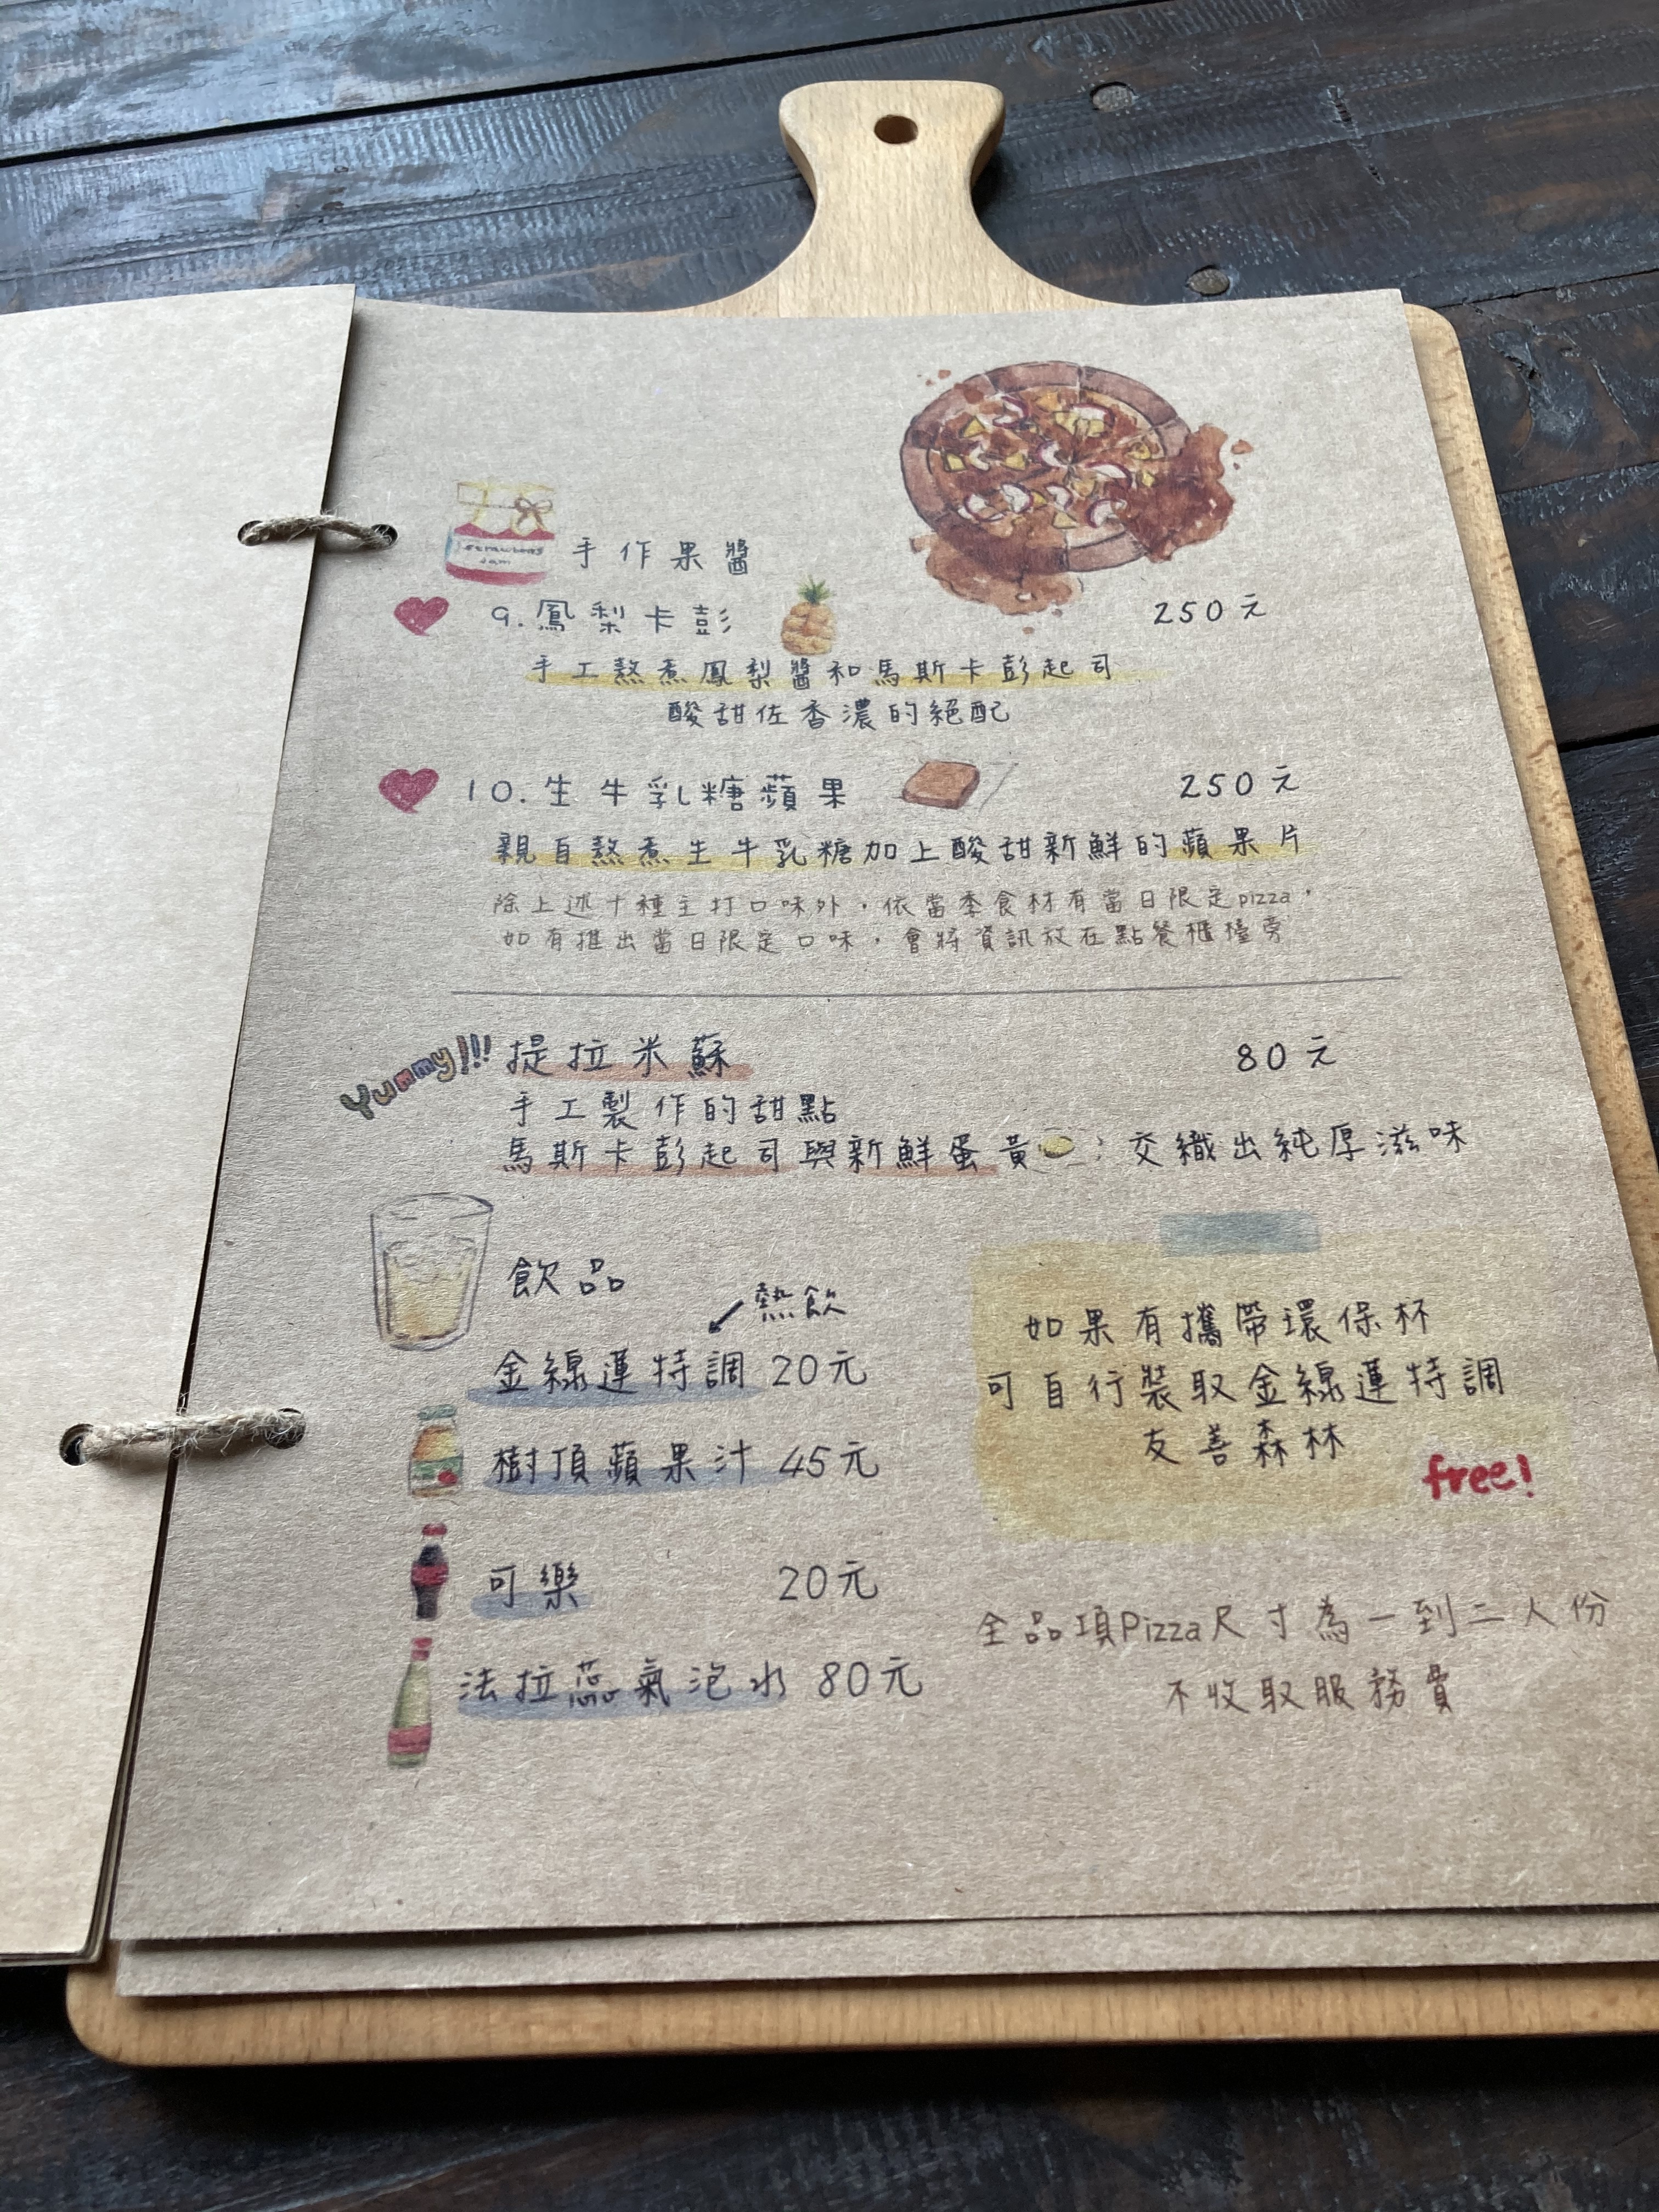 strawberry
Jam
手作果醬
9. 鳳梨卡彭 250元
手工熬煮鳳梨醬和馬斯卡彭起司
酸甜佐香濃的絕配
10. 生牛乳糖蘋果 250元
親自熬煮生牛乳糖加上酸甜新鮮的蘋果片
除上述十種主打口味外，依當季食材有當日限定pizza，
如有推出當日限定口味，會將資訊放在點餐櫃檯旁
Yummy!!! 提拉米蘇 80元
手工製作的甜點
馬斯卡彭起司與新鮮蛋黃；交織出純厚滋味
飲品
熱飲
金線蓮特調 20元
樹頂蘋果汁 45元
可樂 20元
法拉蕊氣泡水 80元
如果有攜帶環保杯
可自行裝取金線蓮特調
友善森林
free!
全品項Pizza尺寸為一到二人份
不收取服務費